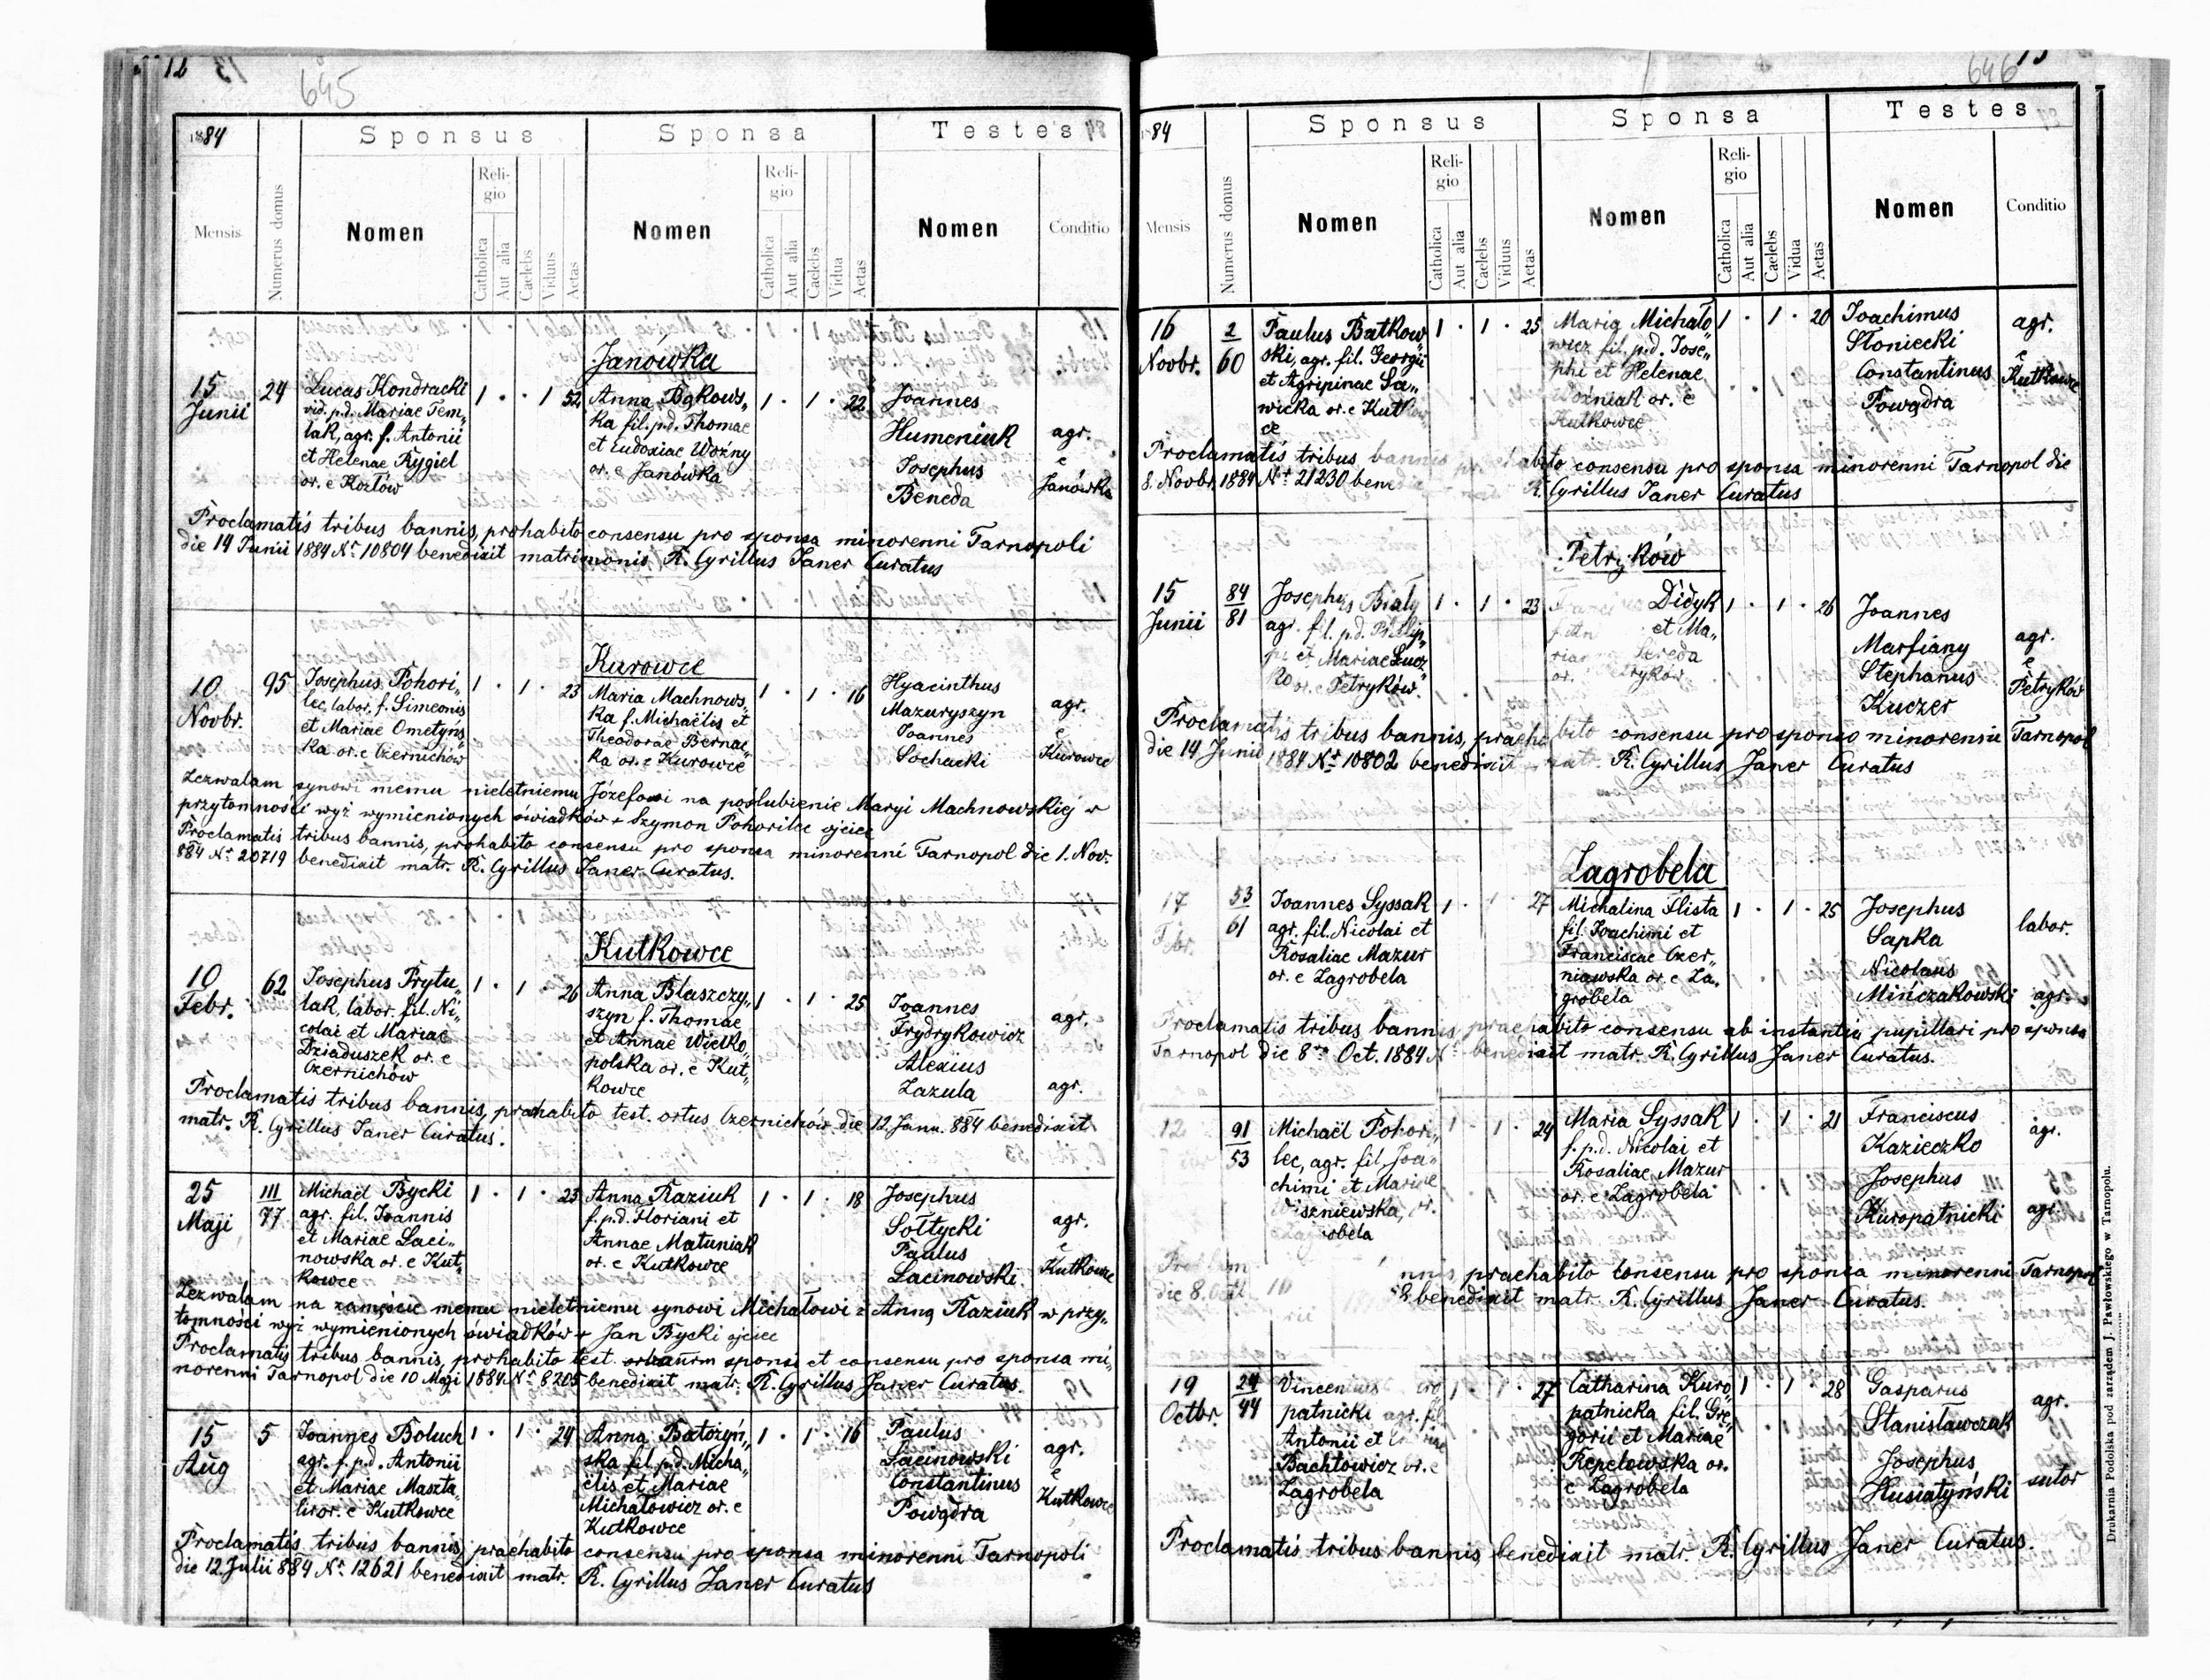 12
645
1884
Sponsus
Sponsa
Testes
Mensis
Numerus domus
Nomen
Religio
Catholica
Aut alia
Caelebs
Viduus
Aetas
Nomen
Religio
Catholica
Aut alia
Caelebs
Vidua
Aetas
Nomen
Conditio
Janówka
15 Junii
24
Lucas Kondracki
vid. p.d. Mariae Tem„
lak, agr. f. Antonii
et Helenae Rygiel
or. e Kozłów
1 · · 1 52
Anna Bąkows„
ka fil. p.d. Thomae
et Eudoxiae Woźny
or. e Janówka
1 · 1 · 22
Joannes
Humeniuk
Josephus
Beneda
agr.
e
Janówka
Proclamatis tribus bannis, prohabito consensu pro sponsa minorenni Tarnopoli
die 14 Junii 1884 Nr 10804 benedixit matrimonis R. Cyrillus Janer Curatus
Kurowce
10 Novbr.
95
Josephus Pohori„
lec, labor. f. Simeonis
et Mariae Ometyńs„
ka or. e Czernichów
1 · 1 · 23
Maria Machnows„
ka f. Michaëlis et
Theodorae Bernac„
ka or. e Kurowce
1 · 1 · 16
Hyacinthus
Mazuryszyn
Joannes
Sochacki
agr.
e
Kurowce
Zezwalam synowi memu nieletniemu Józefowi na poślubienie Maryi Machnowskiéj w
przytomności wyż wymienionych świadków + Szymon Pohorilec ojciec
Proclamatis tribus bannis, prohabito consensu pro sponsa minorenni Tarnopol die 1. Nov.
884 Nr 20719 benedixit matr. R. Cyrillus Janer Curatus.
Kutkowce
10 Febr.
62
Josephus Prytu„
lak, labor. fil. Ni„
colai et Mariae
Dziaduszek or. e
Czernichów
1 · 1 · 26
Anna Błaszczy„
szyn f. Thomae
et Annae Wielko„
polska or. e Kut„
kowce
1 · 1 · 25
Joannes
Frydrykowicz
Alexius
Zazula
agr.
agr.
Proclamatis tribus bannis, prachabito test. ortus Czernichów die 12. Janu. 884 benedixit
matr. R. Cyrillus Janer Curatus.
25 Maji
111
77
Michaël Bycki
agr. fil. Joannis
et Mariae Laci„
nowska or. e Kut„
kowce
1 · 1 · 23
Anna Raziuk
f. p.d. Floriani et
Annae Matuniak
or. e Kutkowce
1 · 1 · 18
Josephus
Sołtycki
Paulus
Lacinowski
agr.
e
Kutkowce
Zezwalam na zamęście memu nieletniemu synowi Michałowi z Anną Raziuk w przy„
tomności wyż wymienionych świadków + Jan Bycki ojciec
Proclamatis tribus bannis, prohabito test. sponsi et consensu pro sponsa mi„
norenni Tarnopol die 10 Maji 1884 Nr 8205 benedixit matr. R. Cyrillus Janer Curatus.
15 Aug
5
Joannes Boluch
agr. f. p.d. Antonii
et Mariae Maszta„
lir or. e Kutkowce
1 · 1 · 24
Anna Batożyń„
ska fil. p.d. Micha„
ëlis et Mariae
Michałowicz or. e
Kutkowce
1 · 1 · 16
Paulus
Lacinowski
Constantinus
Powądra
agr.
e
Kutkowce
Proclamatis tribus bannis, prachabito consensu pro sponsa minorenni Tarnopoli
die 12. Julii 884 Nr 12621 benedixit matr. R. Cyrillus Janer Curatus
646
13
1884
Sponsus
Sponsa
Testes
Mensis
Numerus domus
Nomen
Religio
Catholica
Aut alia
Caelebs
Viduus
Aetas
Nomen
Religio
Catholica
Aut alia
Caelebs
Vidua
Aetas
Nomen
Conditio
16 Novbr.
2
60
Paulus Batkow„
ski, agr. fil. Georgii
et Agripinae Sa„
wicka or. e Kutkow
ce
1 · 1 · 25
Maria Michało„
wicz fil. p.d. Jose„
phi et Helenae
Woźniak or. e
Kutkowce
1 · 1 · 20
Joachimus
Słoniecki
Constantinus
Powądra
agr.
e
Kutkowce
Proclamatis tribus bannis prachabito consensu pro sponsa minorenni Tarnopol die
8. Novbr. 1884 Nr 21230 R. Cyrillus Janer Curatus
Petryków
15 Junii
84
81
Josephus Biały
agr. fil. p.d. Philip„
pi et Mariae Lucz
ko or. e Petryków.
1 · 1 · 23
Didyk
et Ma„
or.
1 · 1 · 26
Joannes
Marfiany
Stephanus
Kuczer
agr.
e
Petryków
Proclamatis tribus bannis, prachabito consensu pro sponsa minorenni Tarnopol
die 14 Junii 1884 Nr 10802 benedixit matr. R. Cyrillus Janer Curatus
Zagrobela
17 Febr.
53
61
Joannes Syssak
agr. fil. Nicolai et
Rosaliae Mazur
or. e Zagrobela
1 · 1 · 27
Michalina Flista
fil. Joachimi et
Franciscae Czer„
niawska or. e Za„
grobela
1 · 1 · 25
Josephus
Sapka
Nicolaus
Mińczakowski
labor.
agr.
Proclamatis tribus bannis prachabito consensu ab instantia pupillari pro sponsa
Tarnopol die 8va Oct. 1884 Nr benedixit matr. R. Cyrillus Janer Curatus.
12
91
53
Michaël Pohori„
lec, agr. fil. Joa„
chimi et Mariae
Wiszniewska, or.
Zagrobela
1 · 1 · 24
Maria Syssak
f. p.d. Nicolai et
Rosaliae Mazur
or. e Zagrobela
1 · 1 · 21
Franciscus
Kazieczko
Josephus
Kuropatnicki
agr.
agr.
prachabito consensu pro sponsa minorenni Tarnopol
die 8. benedixit matr. R. Cyrillus Janer Curatus.
19 Octbr.
24
44
Vincentius
patnicki agr. fil.
Antonii et
Bachtowicz or. e
Zagrobela
1 · 1 · 27
Catharina Kuro„
patnicka fil. Gre„
gorii et Mariae
Repelowska or.
e Zagrobela
1 · 1 · 28
Gasparus
Stanisławczak
Josephus
Husiatyński
agr.
sutor
Proclamatis tribus bannis benedixit matr. R. Cyrillus Janer Curatus.
Drukarnia Podolska pod zarządem J. Pawłowskiego w Tarnopolu.